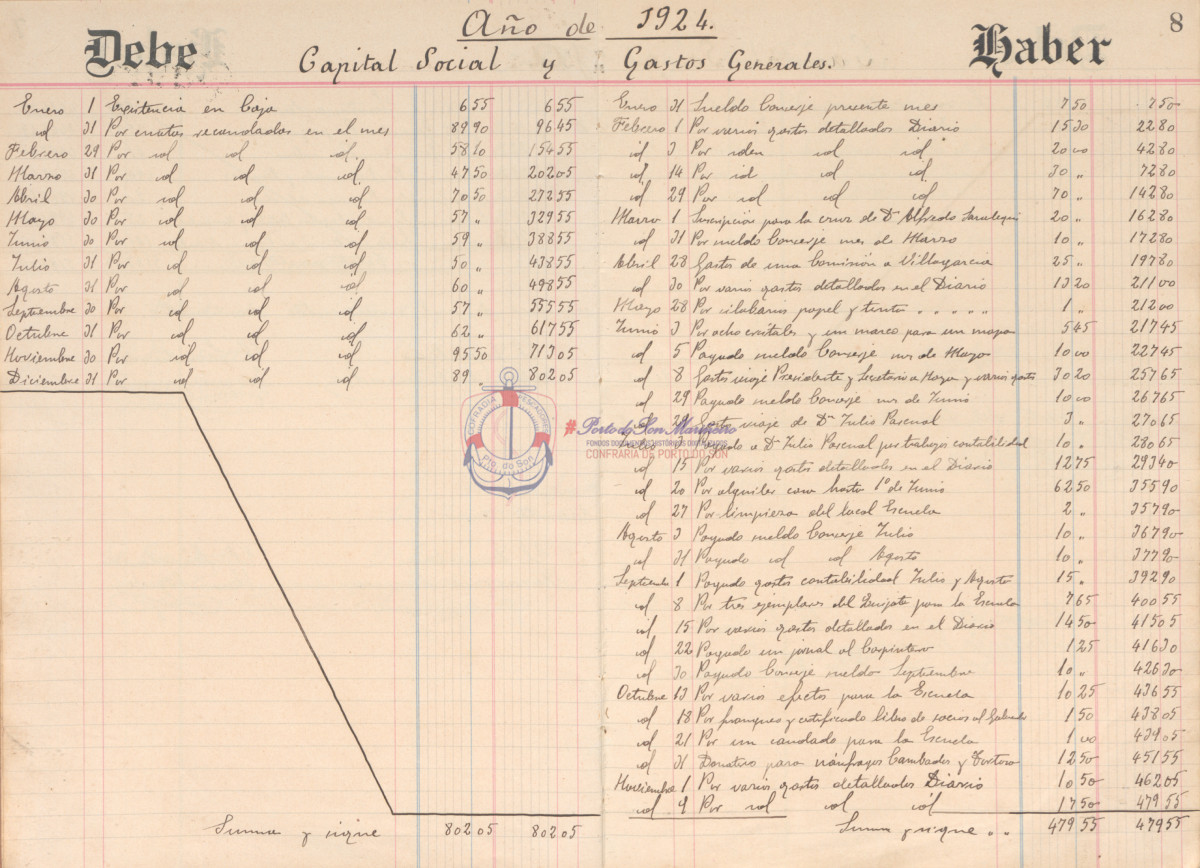 Año de 1924.
8
Debe
Haber
Capital Social y Gastos Generales.
Enero 1 Existencia en Caja 6 55 6 55
id 31 Por cuotas recaudadas en el mes 89 90 96 45
Febrero 29 Por id id id 58 10 154 55
Marzo 31 Por id id id 47 50 202 05
Abril 30 Por id id id 70 50 272 55
Mayo 30 Por id id id 57 " 329 55
Junio 30 Por id id id 59 " 388 55
Julio 31 Por id id id 50 " 438 55
Agosto 31 Por id id id 60 " 498 55
Septiembre 30 Por id id id 57 " 555 55
Octubre 31 Por id id id 62 " 617 55
Noviembre 30 Por id id id 95 50 713 05
Diciembre 31 Por id id id 89 " 802 05
Suma y sigue 802 05 802 05
Enero 31 Sueldo Conserje presente mes 7 50 7 50
Febrero 1 Por varios gastos detallados Diario 15 30 22 80
id 3 Por iden id id 20 00 42 80
id 14 Por id id id 30 " 72 80
id 29 Por id id id 70 " 142 80
Marzo 1 Suscripción para la cruz de Dn Alfredo Saralegui 20 " 162 80
id 31 Por sueldo Conserje mes de Marzo 10 " 172 80
Abril 28 Gastos de una Comisión a Villagarcia 25 " 197 80
id 30 Por varios gastos detallados en el Diario 13 20 211 00
Mayo 28 Por papel y tinta " " " " " 1 " 212 00
Junio 3 Por ocho cristales y un marco para un mapa 5 45 217 45
id 5 Pagado sueldo Conserje mes de Mayo 10 00 227 45
id 8 Gastos viaje Presidente y Secretario a Noya y varios gastos 30 20 257 65
id 29 Pagado sueldo Conserje mes de Junio 10 00 267 65
id 29 Gastos viaje de Dn Julio Pascual 3 " 270 65
Pagado a Dn Julio Pascual por trabajos contabilidad 10 " 280 65
id 15 Por varios gastos detallados en el Diario 12 75 293 40
id 20 Por alquiler casa hasta 1º de Junio 62 50 355 90
id 27 Por limpieza del local Escuela 2 " 357 90
Agosto 3 Pagado sueldo Conserje Julio 10 " 367 90
id 31 Pagado id id Agosto 10 " 377 90
Septiembre 1 Pagado gastos contabilidad Julio y Agosto 15 " 392 90
id 8 Por tres ejemplares del Quijote para la Escuela 7 65 400 55
id 15 Por varios gastos detallados en el Diario 14 50 415 05
id 22 Pagado un jornal al Carpintero 1 25 416 30
id 30 Pagado Conserje sueldo Septiembre 10 " 426 30
Octubre 13 Por varios efectos para la Escuela 10 25 436 55
id 18 Por franqueo y certificado libro de socios al 1 50 438 05
id 21 Por un candado para la Escuela 1 00 439 05
id 31 Donativo para náufragos Cambados y 12 50 451 55
Noviembre 1 Por varios gastos detallados Diario 10 50 462 05
id 9 Por id id id 17 50 479 55
Suma y sigue " " 479 55 479 55
COFRADIA PESCADORES
Pto. do Son
#Porto do Son Mariñeiro
FONDOS DOCUMENTAIS HISTÓRICOS DIXITALIZADOS
CONFRARÍA DE PORTO DO SON